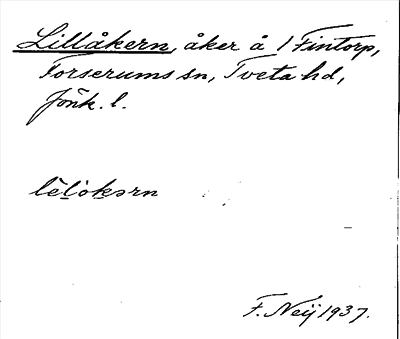 Lillåkern, åker å 1 Fintorp,
Forserums sn, Tveta hd,
Jönk. l.
lèlòkərn
F. Neij 1937.